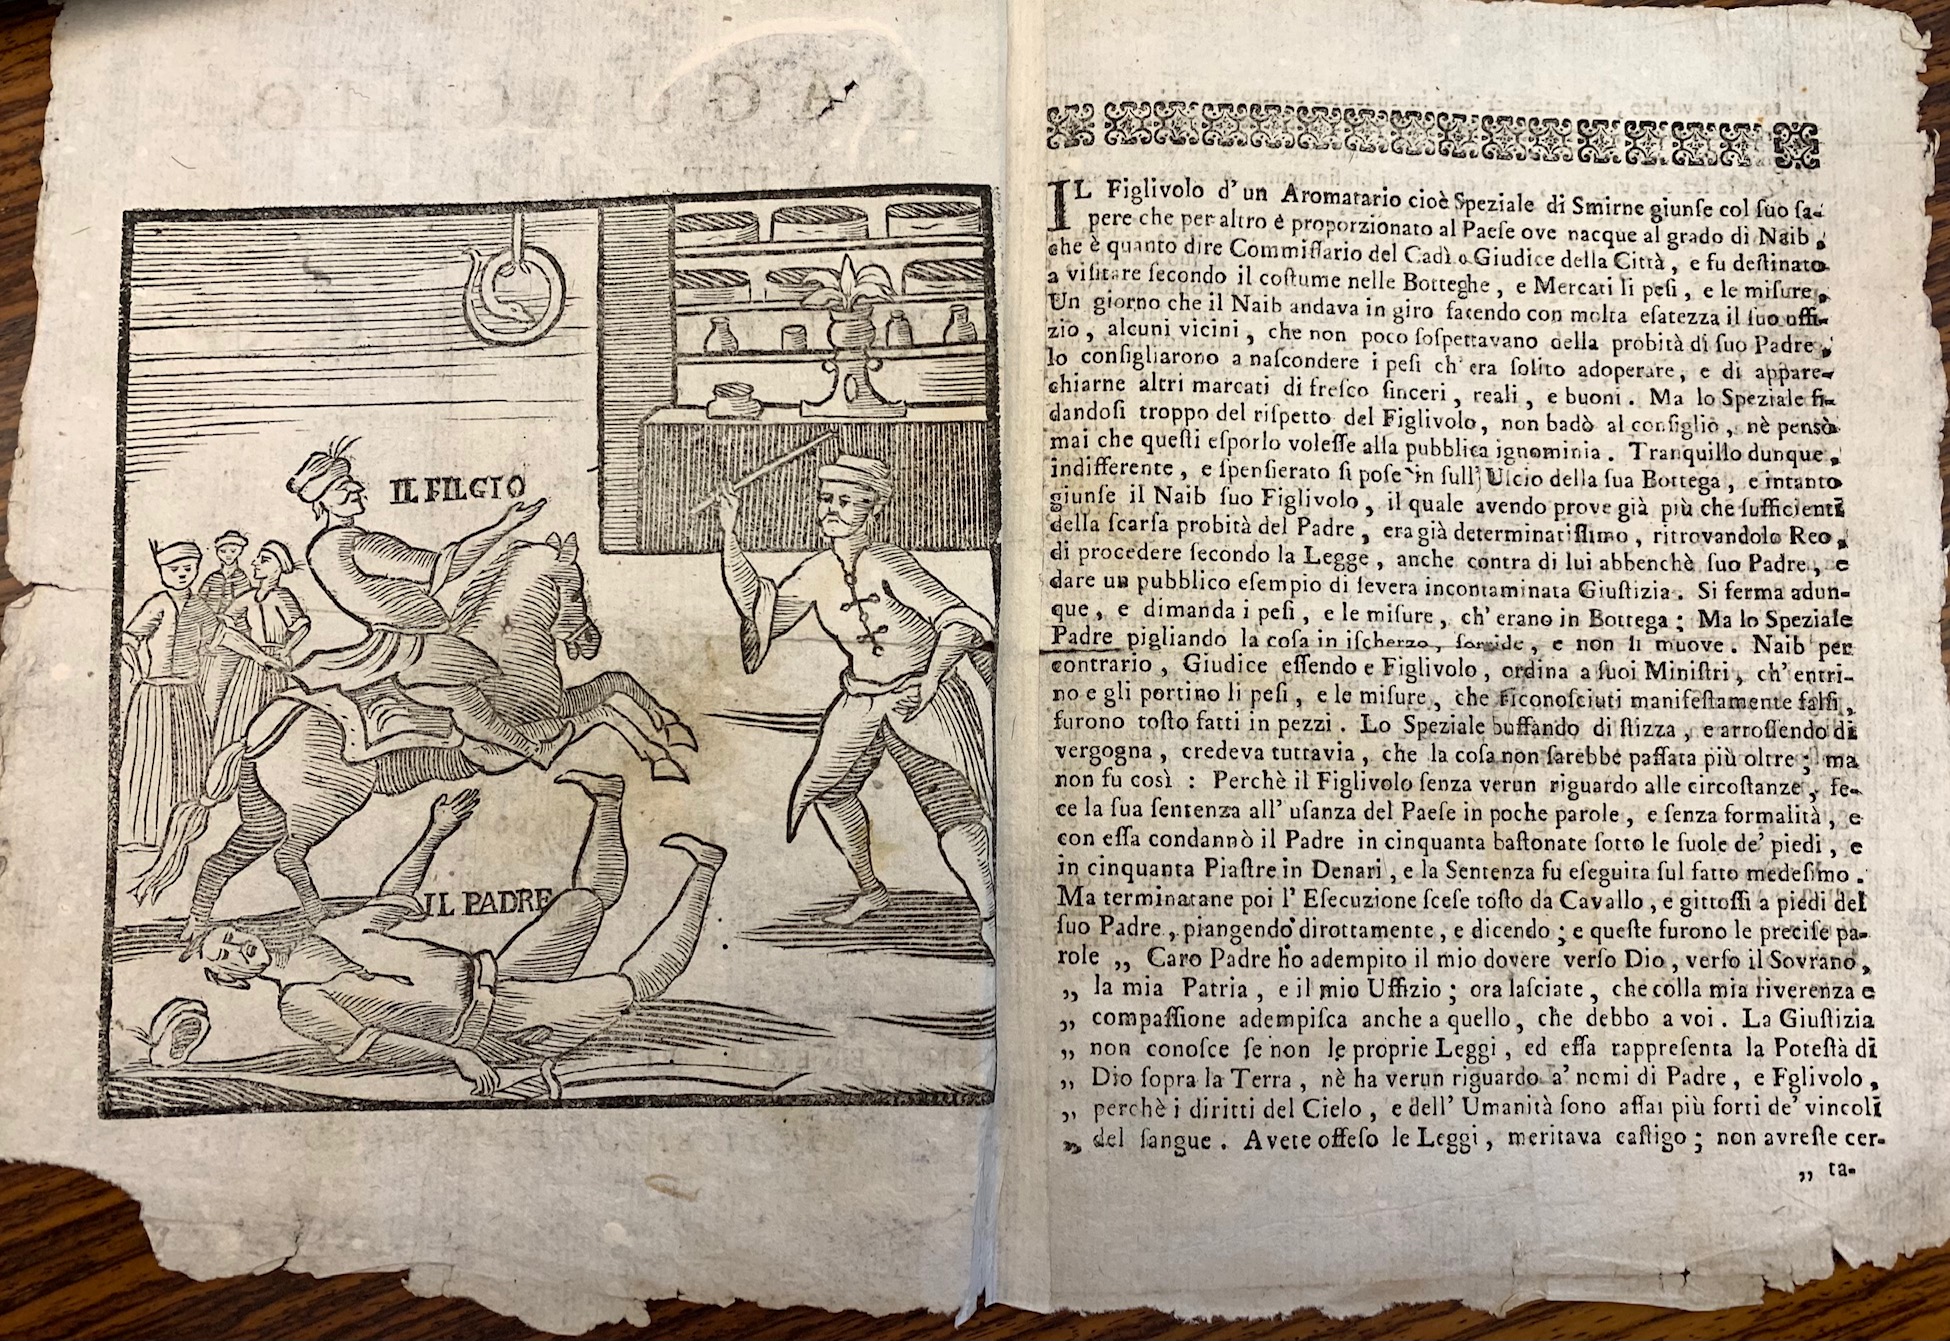 IL FILGIO
IL PADRE
IL Figlivolo d' un Aromatario cioè Speziale di Smirne giunſe col ſuo ſa-
pere che per altro è proporzionato al Paeſe ove nacque al grado di Naib,
che è quanto dire Commiſſario del Cadì o Giudice della Città, e fu deſtinato
a viſitare ſecondo il coſtume nelle Botteghe, e Mercati li peſi, e le miſure.
Un giorno che il Naib andava in giro facendo con molta eſatezza il ſuo uffi-
zio, alcuni vicini, che non poco ſoſpettavano della probità di ſuo Padre,
lo conſigliarono a naſcondere i peſi ch' era ſolito adoperare, e di appare-
chiarne altri marcati di freſco ſinceri, reali, e buoni. Ma lo Speziale fi-
dandoſi troppo del riſpetto del Figlivolo, non badò al conſiglio, nè pensò
mai che queſti eſporlo voleſſe alla pubblica ignominia. Tranquillo dunque,
indifferente, e ſpenſierato ſi poſe in ſull' Uſcio della ſua Bottega, e intanto
giunſe il Naib ſuo Figlivolo, il quale avendo prove già più che ſufficienti
della ſcarſa probità del Padre, era già determinatiſſimo, ritrovandolo Reo,
di procedere ſecondo la Legge, anche contra di lui abbenchè ſuo Padre, e
dare un pubblico eſempio di ſevera incontaminata Giuſtizia. Si ferma adun-
que, e dimanda i peſi, e le miſure, ch' erano in Bottega; Ma lo Speziale
Padre pigliando la coſa in iſcherzo, ſorride, e non ſi muove. Naib per
contrario, Giudice eſſendo e Figlivolo, ordina a ſuoi Miniſtri, ch' entri-
no e gli portino li peſi, e le miſure, che riconoſciuti manifeſtamente falſi,
furono toſto fatti in pezzi. Lo Speziale buffando di ſtizza, e arroſſendo di
vergogna, credeva tuttavia, che la coſa non ſarebbe paſſata più oltre; ma
non fu così: Perchè il Figlivolo ſenza verun riguardo alle circoſtanze, fe-
ce la ſua ſentenza all' uſanza del Paeſe in poche parole, e ſenza formalità, e
con eſſa condannò il Padre in cinquanta baſtonate ſotto le ſuole de' piedi, e
in cinquanta Piaſtre in Denari, e la Sentenza fu eſeguita ſul fatto medeſimo.
Ma terminatane poi l' Eſecuzione ſceſe toſto da Cavallo, e gittoſſi a piedi del
ſuo Padre, piangendo dirottamente, e dicendo; e queſte furono le preciſe pa-
role „ Caro Padre ho adempito il mio dovere verſo Dio, verſo il Sovrano,
„ la mia Patria, e il mio Uffizio; ora laſciate, che colla mia riverenza e
„ compaſſione adempiſca anche a quello, che debbo a voi. La Giuſtizia
„ non conoſce ſe non le proprie Leggi, ed eſſa rappreſenta la Poteſtà di
„ Dio ſopra la Terra, nè ha verun riguardo a' nomi di Padre, e Fglivolo,
„ perchè i diritti del Cielo, e dell' Umanità ſono aſſai più forti de' vincoli
„ del ſangue. Avete offeſo le Leggi, meritava caſtigo; non avreſte cer-
„ ta-